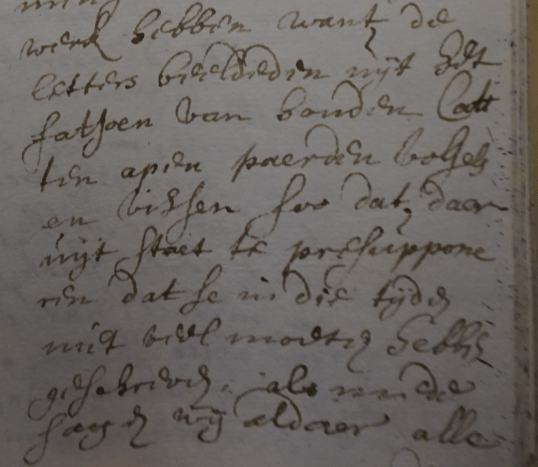 werk hebben want de
letters beeldeden uijt het
fatsoen van honden Catt
ten apen paerden vogels
en vissen soo dat daer
uijt staet te presuppone
ren dat se in die tijden
niet veel moeten hebben
geschreven. als mede
sagen wij aldaer alle